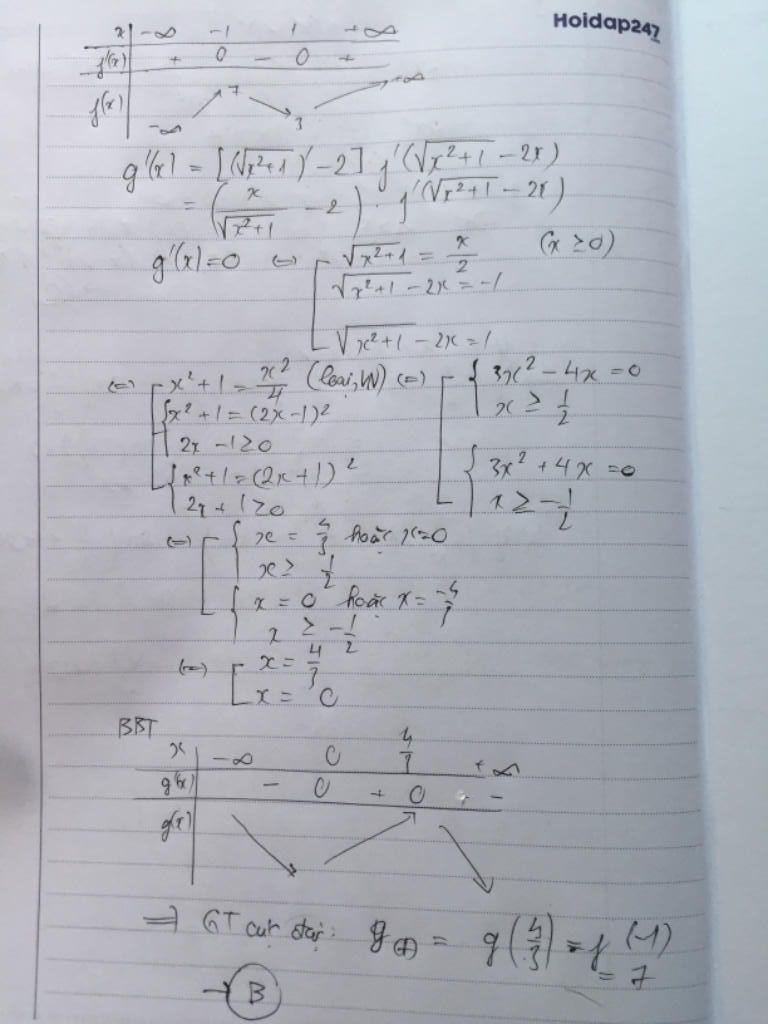 Hoidap247
x | -∞ -1 1 +∞
f'(x) | + 0 - 0 +
f(x) | -∞ ↗ 7 ↘ 3 ↗ +∞
g'(x) = [(√(x²+1))' - 2] f'(√(x²+1) - 2x)
= (x/√(x²+1) - 2) · f'(√(x²+1) - 2x)
g'(x) = 0 ⇔ [ √(x²+1) = x/2 (x ≥ 0)
√(x²+1) - 2x = -1
√(x²+1) - 2x = 1
⇔ [ x² + 1 = x²/4 (loại, VN) ⇔ [ { 3x² - 4x = 0
{ x² + 1 = (2x-1)² x ≥ 1/2
2x - 1 ≥ 0
{ x² + 1 = (2x+1)² { 3x² + 4x = 0
2x + 1 ≥ 0 x ≥ -1/2
⇔ [ { x = 4/3 hoặc x = 0
x ≥ 1/2
{ x = 0 hoặc x = -4/3
x ≥ -1/2
⇔ [ x = 4/3
x = 0
BBT
x | -∞ 0 4/3 +∞
g'(x) | - 0 + 0 -
g(x) | ↘ ↗ ↘
⇒ GT cực đại: g(+) = g(4/3) = f(-1)
= 7
→ B